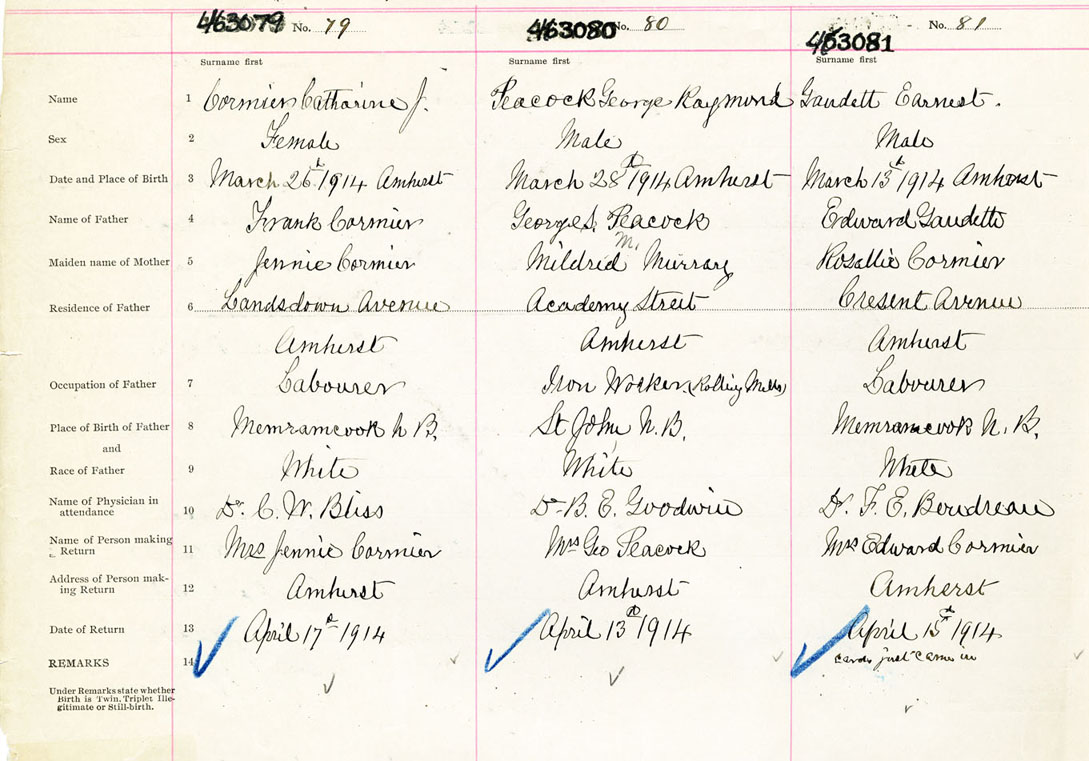 463079 No. 79 463080 No. 80 463081 No. 81
Surname first Surname first Surname first
Name 1 Cormier Catharine J. Peacock George Raymond Gaudett Earnest.
Sex 2 Female Male Male
Date and Place of Birth 3 March 26th 1914 Amherst March 28th 1914 Amherst March 13th 1914 Amherst
Name of Father 4 Frank Cormier George S. Peacock Edward Gaudette
M.
Maiden name of Mother 5 Jennie Cormier Mildred Murray Rosallie Cormier
Residence of Father 6 Landsdown Avenue Academy Street Cresent Avenue
Amherst Amherst Amherst
Occupation of Father 7 Labourer Iron Worker (Rolling Mills) Labourer
Place of Birth of Father 8 Memramcook N B. St John N. B. Memramcook N. B.
and
Race of Father 9 White White White
Name of Physician in
attendance 10 Dr. C. W. Bliss Dr B. E. Goodwin Dr. F. E. Boudreau
Name of Person making
Return 11 Mrs Jennie Cormier Mrs Geo Peacock Mrs Edward Cormier
Address of Person mak-
ing Return 12 Amherst Amherst Amherst
Date of Return 13 April 17th 1914 April 13th 1914 April 15th 1914
REMARKS 14 card just came in
Under Remarks state whether
Birth is Twin, Triplet Ille-
gitimate or Still-birth.